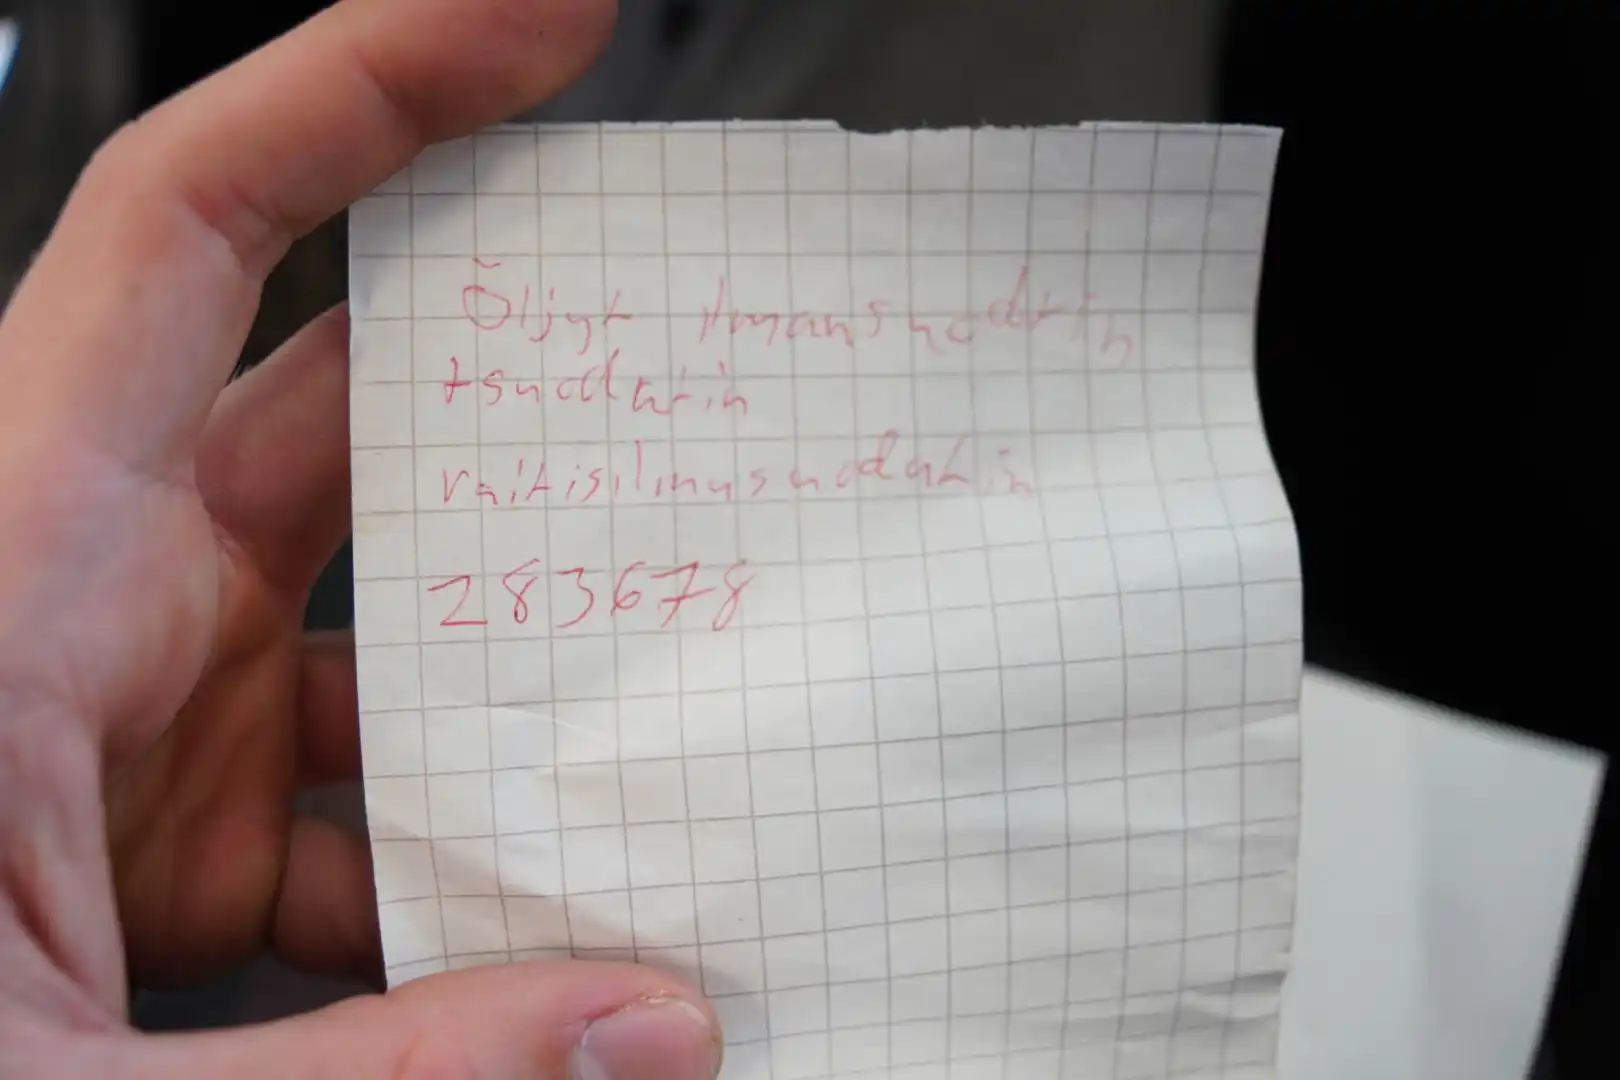 Öljyt ilmansuodatin
tsuodatin
raitisilmasuodatin
283678